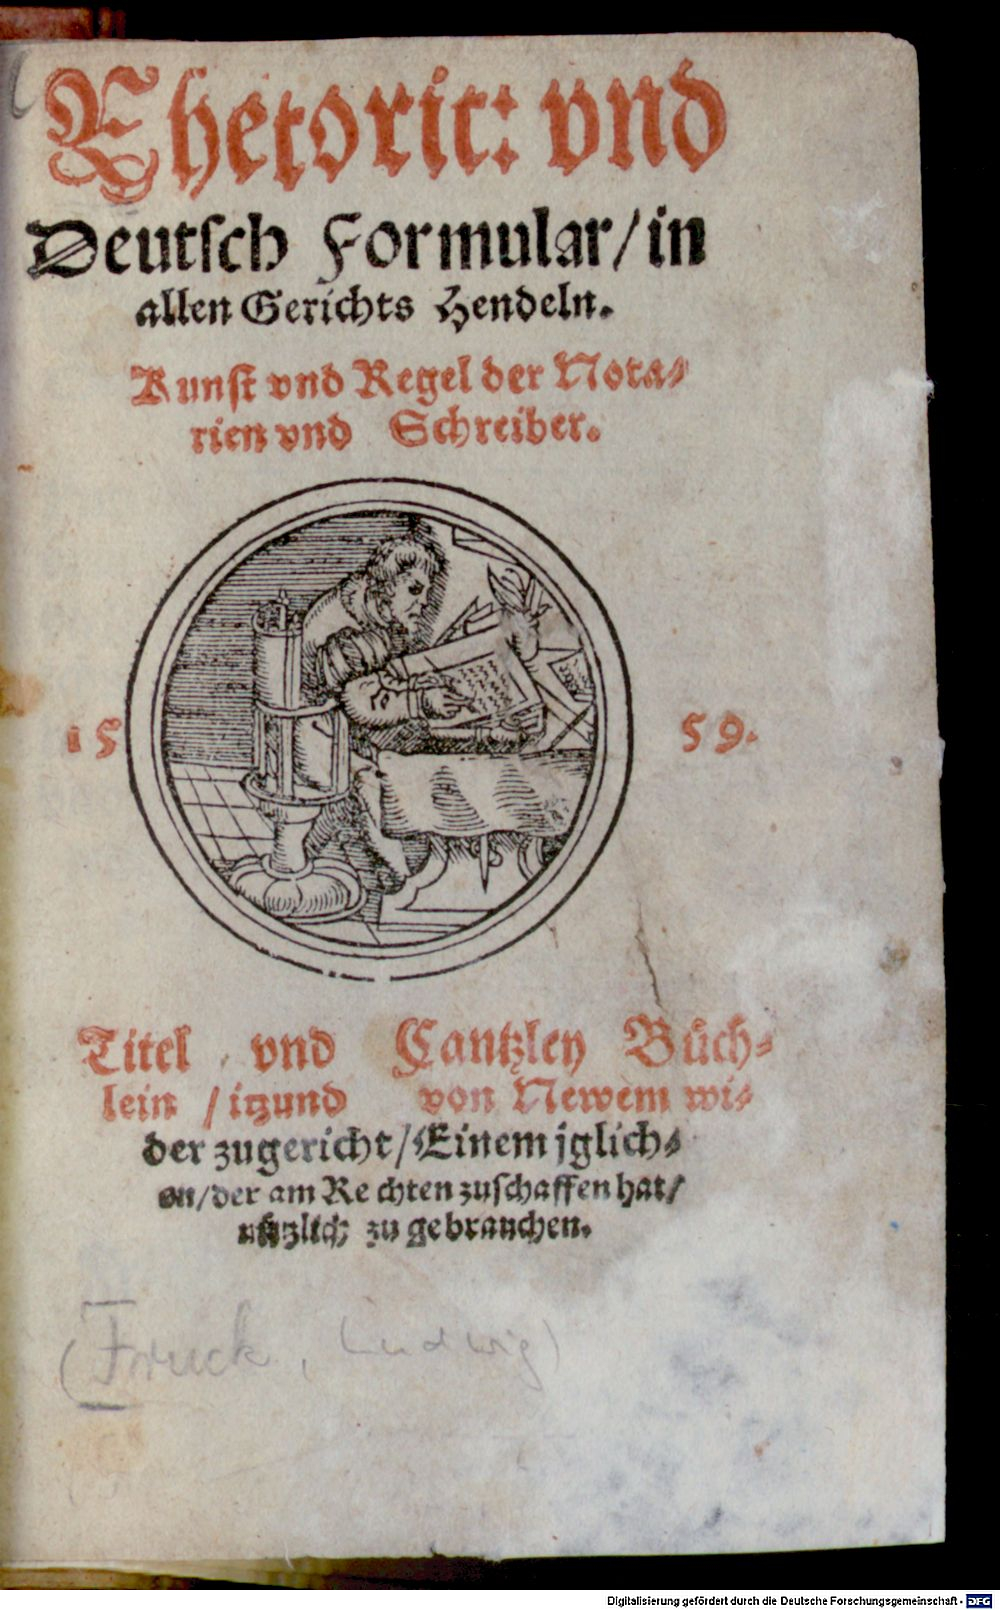 Rhetoric: vnd
Deutsch Formular/in
allen Gerichts Hendeln.
Kunst vnd Regel der Nota⸗
rien vnd Schreiber.
15 59.
Titel vnd Cantzley Bůch⸗
lein /itzund von Newem wi⸗
der zugericht/Einem jglich⸗
en/der am Re chten zuschaffen hat/
nützlich zu gebrauchen.
(Fruck, Ludwig)
Digitalisierung gefördert durch die Deutsche Forschungsgemeinschaft - DFG